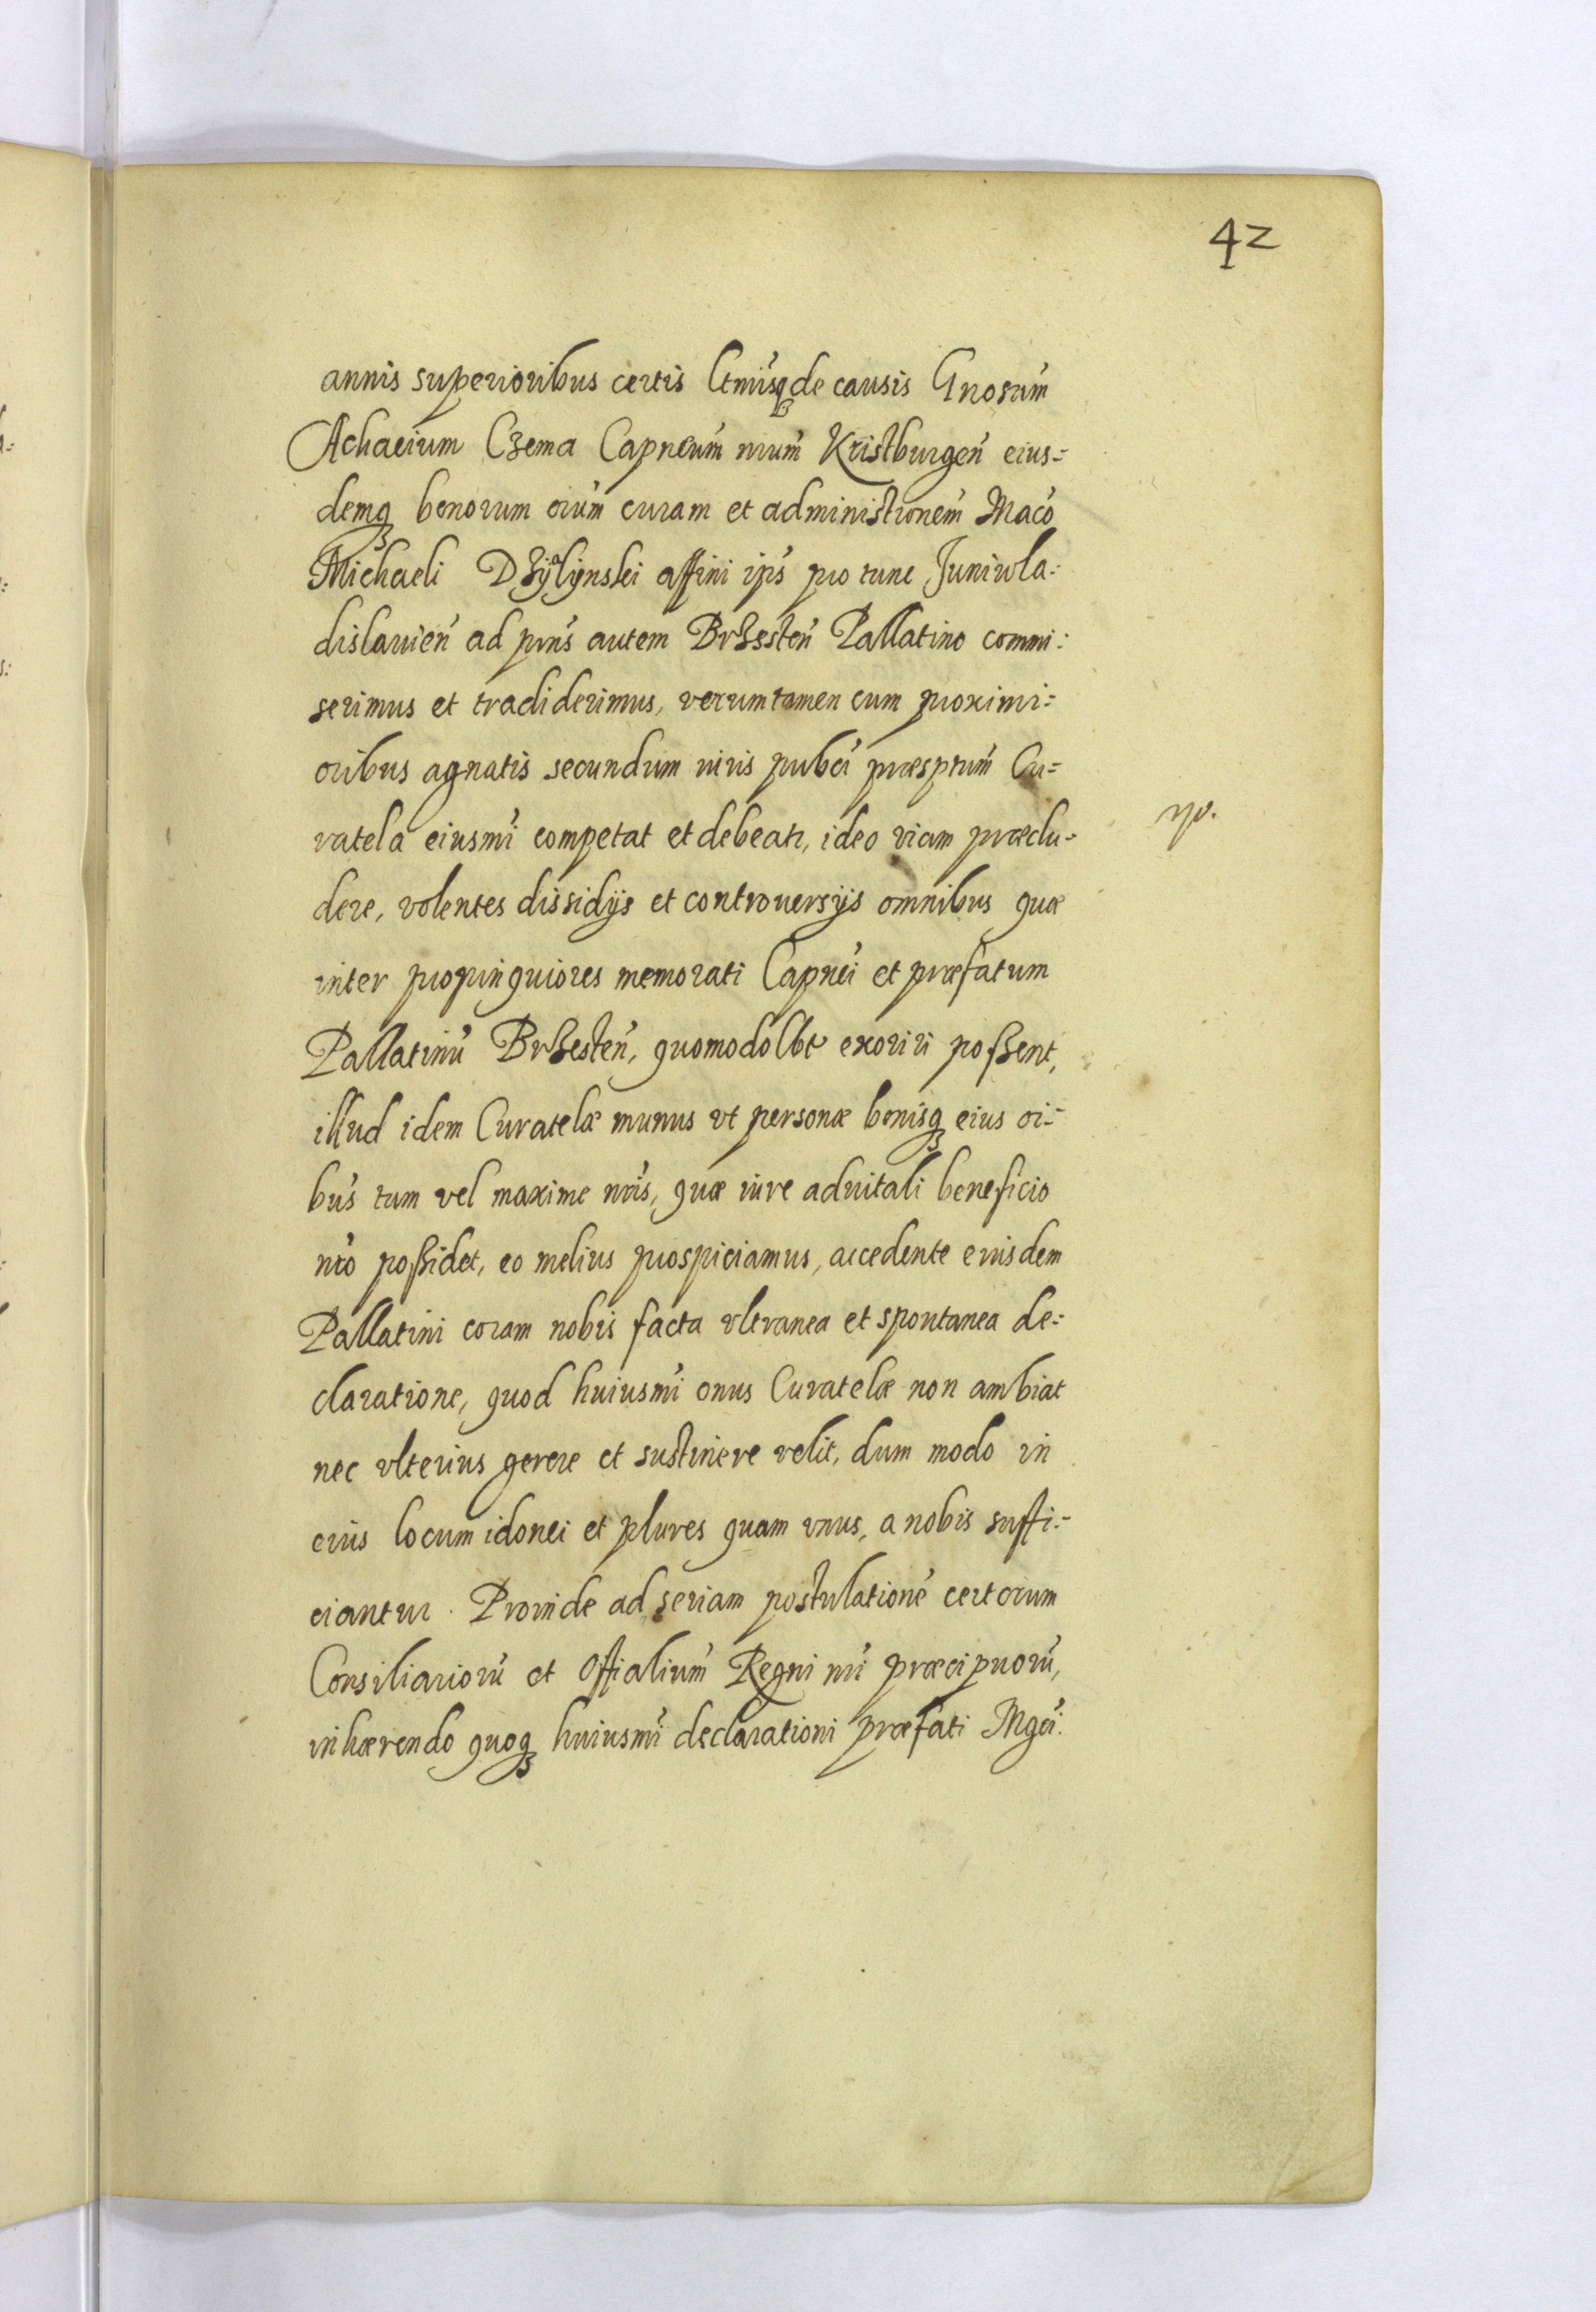 42
annis superioribus certis ltmisq de causis Gnosum
Achacium Czema Capneum nrum Kristburgen eius=
demq bonorum oium curam et administionem Maco
Michaeli Dzyalynski affini ips pro tunc Juniwla=
dislauien ad prns autem Brzesten Pallatino commi:
serimus et tradiderimus, veruntamen cum proximi=
oribus agnatis secundum iuris pubci praesptum Cu=
ratela eiusmi competat et debeatr, ideo viam praeclu=
yo.
dere, volentes dissidijs et controuersijs omnibus quae
inter propinquiores memorati Capnei et praefatum
Pallatinu Brzesten, quomodolbt exoriri possent,
illud idem Curatelae munus vt personae bonisq eius oi=
bus tum vel maxime nris, quae iure aduitali beneficio
nro possidet, eo melius prospiciamus, accedente eiusdem
Pallatini coram nobis facta vltranea et spontanea de=
claratione, quod huiusmi onus Curatelae non ambiat
nec vlterius gerere et sustinere velit, dum modo in
eius locum idonei et plures quam vnus, a nobis suffi=
ciantur. Proinde ad seriam postulatione certorum
Consiliarioru et Offialium Regni nri praecipuoru,
inhaerendo quoq huiusmi declarationi praefati Mgci